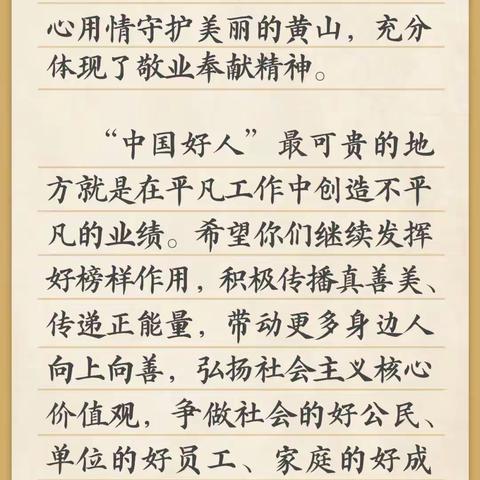 心用情守护美丽的黄山，充分
体现了敬业奉献精神。
“中国好人”最可贵的地
方就是在平凡工作中创造不平
凡的业绩。希望你们继续发挥
好榜样作用，积极传播真善美、
传递正能量，带动更多身边人
向上向善，弘扬社会主义核心
价值观，争做社会的好公民、
单位的好员工、家庭的好成